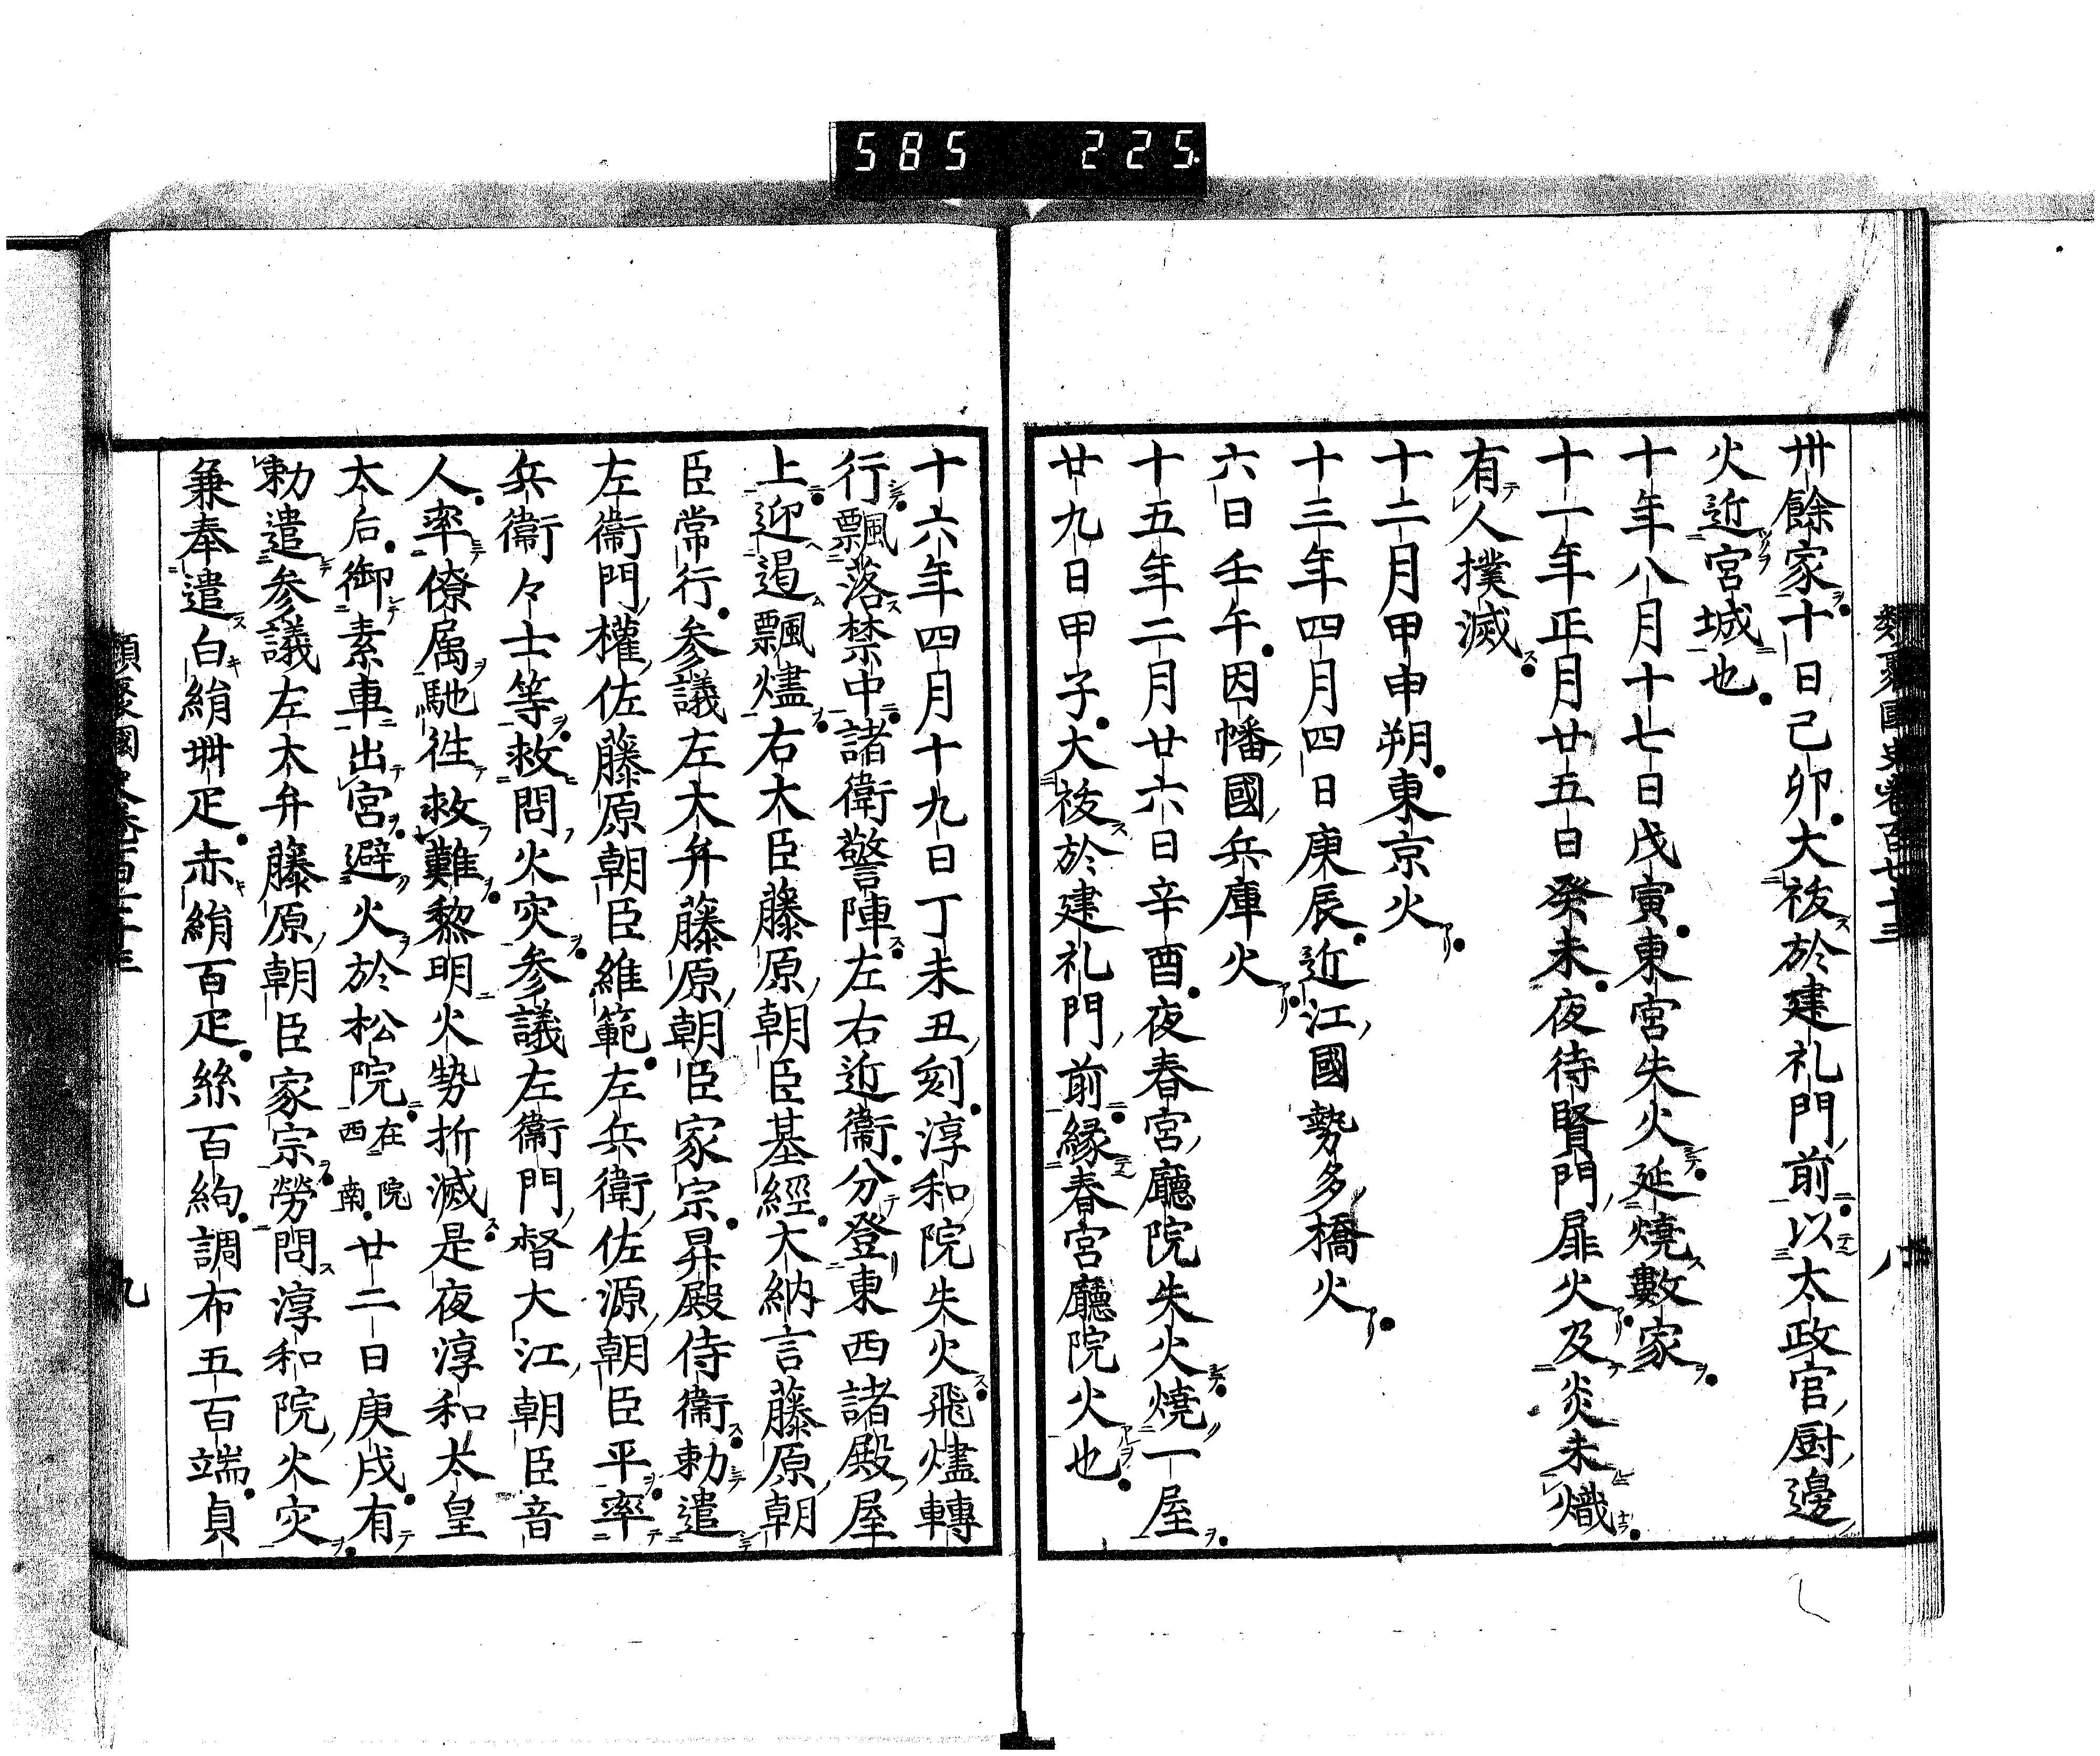 585 225
類聚國史卷百七十三 八
卅餘家十日己卯大祓於建礼門前以太政官厨邊
火近宮城也
十年八月十七日戊寅東宮失火延燒數家
十一年正月廿五日癸未夜待賢門扉火及炎未熾
有人撲滅
十二月甲申朔東京火
十三年四月四日庚辰近江國勢多橋火
六日壬午因幡國兵庫火
十五年二月廿六日辛酉夜春宮廳院失火燒一屋
廿九日甲子大祓於建礼門前縁春宮廳院火也
十六年四月十九日丁未丑刻淳和院失火飛燼轉
行飄落禁中諸衛警陣左右近衞分登東西諸殿屋
上迎遏飄燼右大臣藤原朝臣基經大納言藤原朝
臣常行参議左大弁藤原朝臣家宗昇殿侍衞勅遣
左衞門權佐藤原朝臣維範左兵衛佐源朝臣平率
兵衞々士等救問火灾参議左衞門督大江朝臣音
人率僚属馳往救難黎明火勢折滅是夜淳和太皇
太后御素車出宮避火於松院在院西南廿二日庚戌有
勅遣参議左大弁藤原朝臣家宗勞問淳和院火灾
兼奉遣白絹卌疋赤絹百疋絲百絇調布五百端貞
類聚國史卷百七十三 九